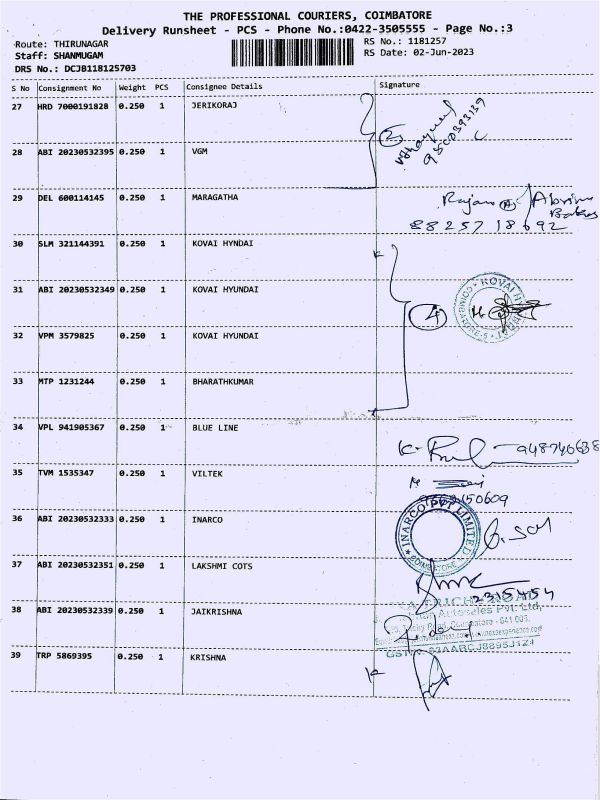 THE PROFESSIONAL COURIERS, COIMBATORE
Delivery Runsheet - PCS - Phone No.:0422-3505555 - Page No.:3
Route: THIRUNAGAR
RS No.: 1181257
Staff: SHANMUGAM
RS Date: 02-Jun-2023
DRS No.: DCJB118125703
S No Consignment No Weight PCS Consignee Details Signature
27 HRD 7000191828 0.250 1 JERIKORAJ
2
28 ABI 20230532395 0.250 1 VGM
29 DEL 600114145 0.250 1 MARAGATHA
88257 18692
30 SLM 321144391 0.250 1 KOVAI HYNDAI
31 ABI 20230532349 0.250 1 KOVAI HYUNDAI
4
32 VPM 3579825 0.250 1 KOVAI HYUNDAI
33 MTP 1231244 0.250 1 BHARATHKUMAR
34 VPL 941905367 0.250 1 BLUE LINE
35 TVM 1535347 0.250 1 VILTEK
36 ABI 20230532333 0.250 1 INARCO
INARCO PVT LIMITED
COIMBATORE
37 ABI 20230532351 0.250 1 LAKSHMI COTS
38 ABI 20230532339 0.250 1 JAIKRISHNA
Autosales Pvt. Ltd.
39 TRP 5869395 0.250 1 KRISHNA